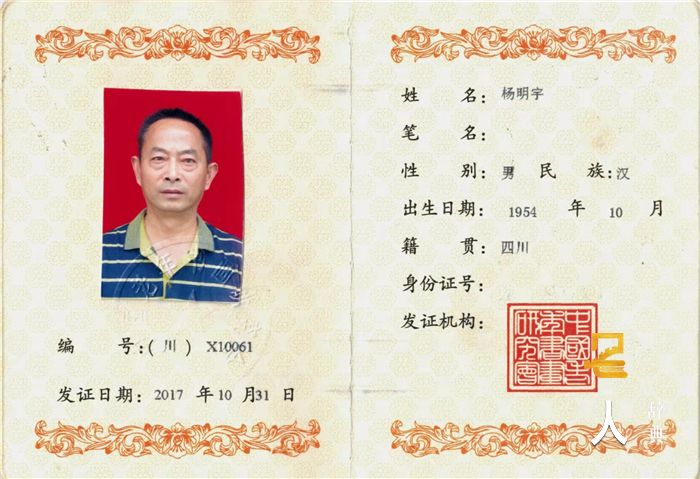 编 号:(川) X10061
发证日期: 2017 年 10 月 31 日
姓 名: 杨明宇
笔 名:
性 别: 男 民 族: 汉
出生日期: 1954 年 10 月
籍 贯: 四川
身份证号:
发证机构:
人
辞典